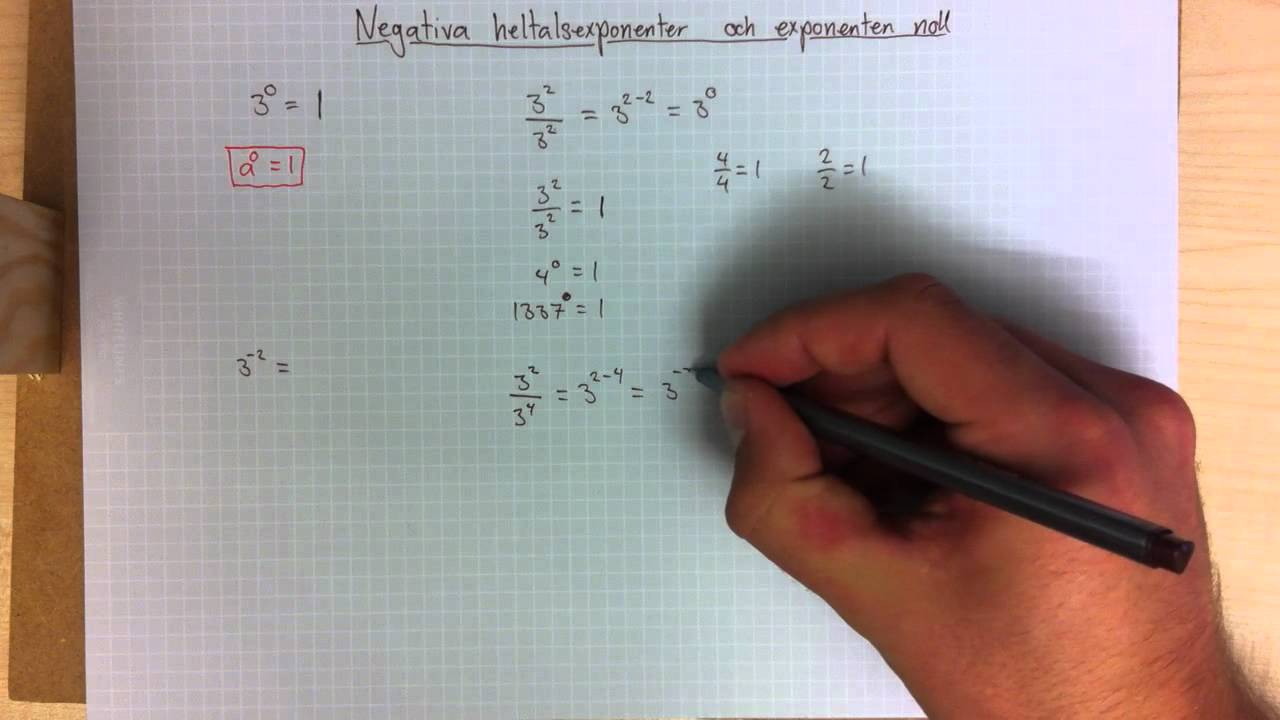 Negativa heltalsexponenter och exponenten noll
3⁰ = 1
3²/3² = 3²⁻² = 3⁰
a⁰ = 1
4/4 = 1
2/2 = 1
3²/3² = 1
4⁰ = 1
1337⁰ = 1
3⁻² =
3²/3⁴ = 3²⁻⁴ = 3⁻